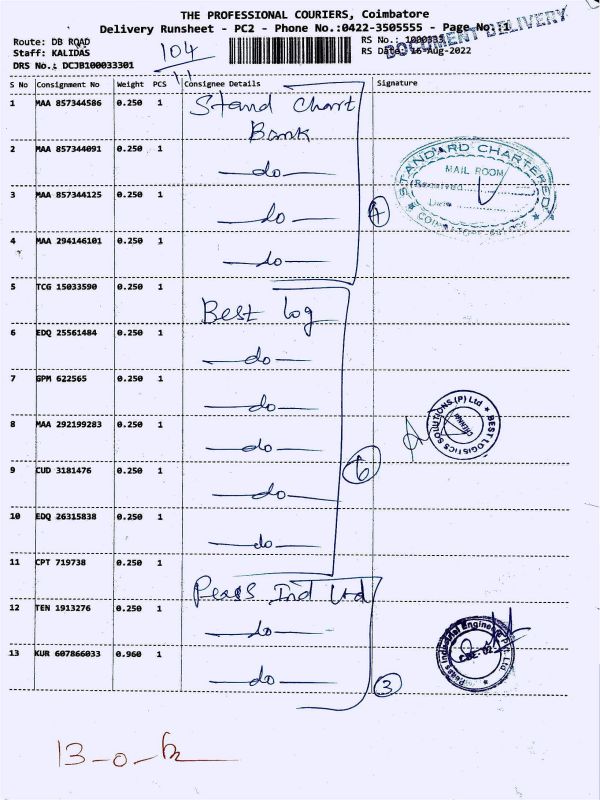 THE PROFESSIONAL COURIERS, Coimbatore
Delivery Runsheet - PC2 - Phone No.:0422-3505555 - Page No: 1
DOCUMENT DELIVERY
Route: DB ROAD
Staff: KALIDAS
DRS No.: DCJB100033301
104
RS No.: 1000333
RS Date: 16-Aug-2022
S No Consignment No Weight PCS Consignee Details Signature
1 MAA 857344586 0.250 1 Stand Chart
Bank
2 MAA 857344091 0.250 1 —do—
3 MAA 857344125 0.250 1 —do—
4 MAA 294146101 0.250 1 —do—
4
STANDARD CHARTERED
MAIL ROOM
Received
Date
5 TCG 15033590 0.250 1 Best Log
6 EDQ 25561484 0.250 1 —do—
7 GPM 622565 0.250 1 —do—
8 MAA 292199283 0.250 1 —do—
9 CUD 3181476 0.250 1 —do—
10 EDQ 26315838 0.250 1 —do—
6
BEST LOGISTICS SOLUTIONS (P) Ltd
11 CPT 719738 0.250 1 Pears Ind Ltd
12 TEN 1913276 0.250 1 —do—
13 KUR 607866033 0.960 1 —do—
3
Pears Industrial Engineers Pvt. Ltd
CBE-02